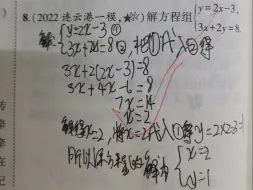 8.(2022 连云港一模,★☆)解方程组 {y=2x-3,
3x+2y=8.
解: {y=2x-3 ①
3x+2y=8 ② 把①代入②得
3x+2(2x-3)=8
3x+4x-6=8
7x=14
x=2
x=2,将x=2代入①得y=2×2-3=1
所以原方程组的解为 {x=2
y=1